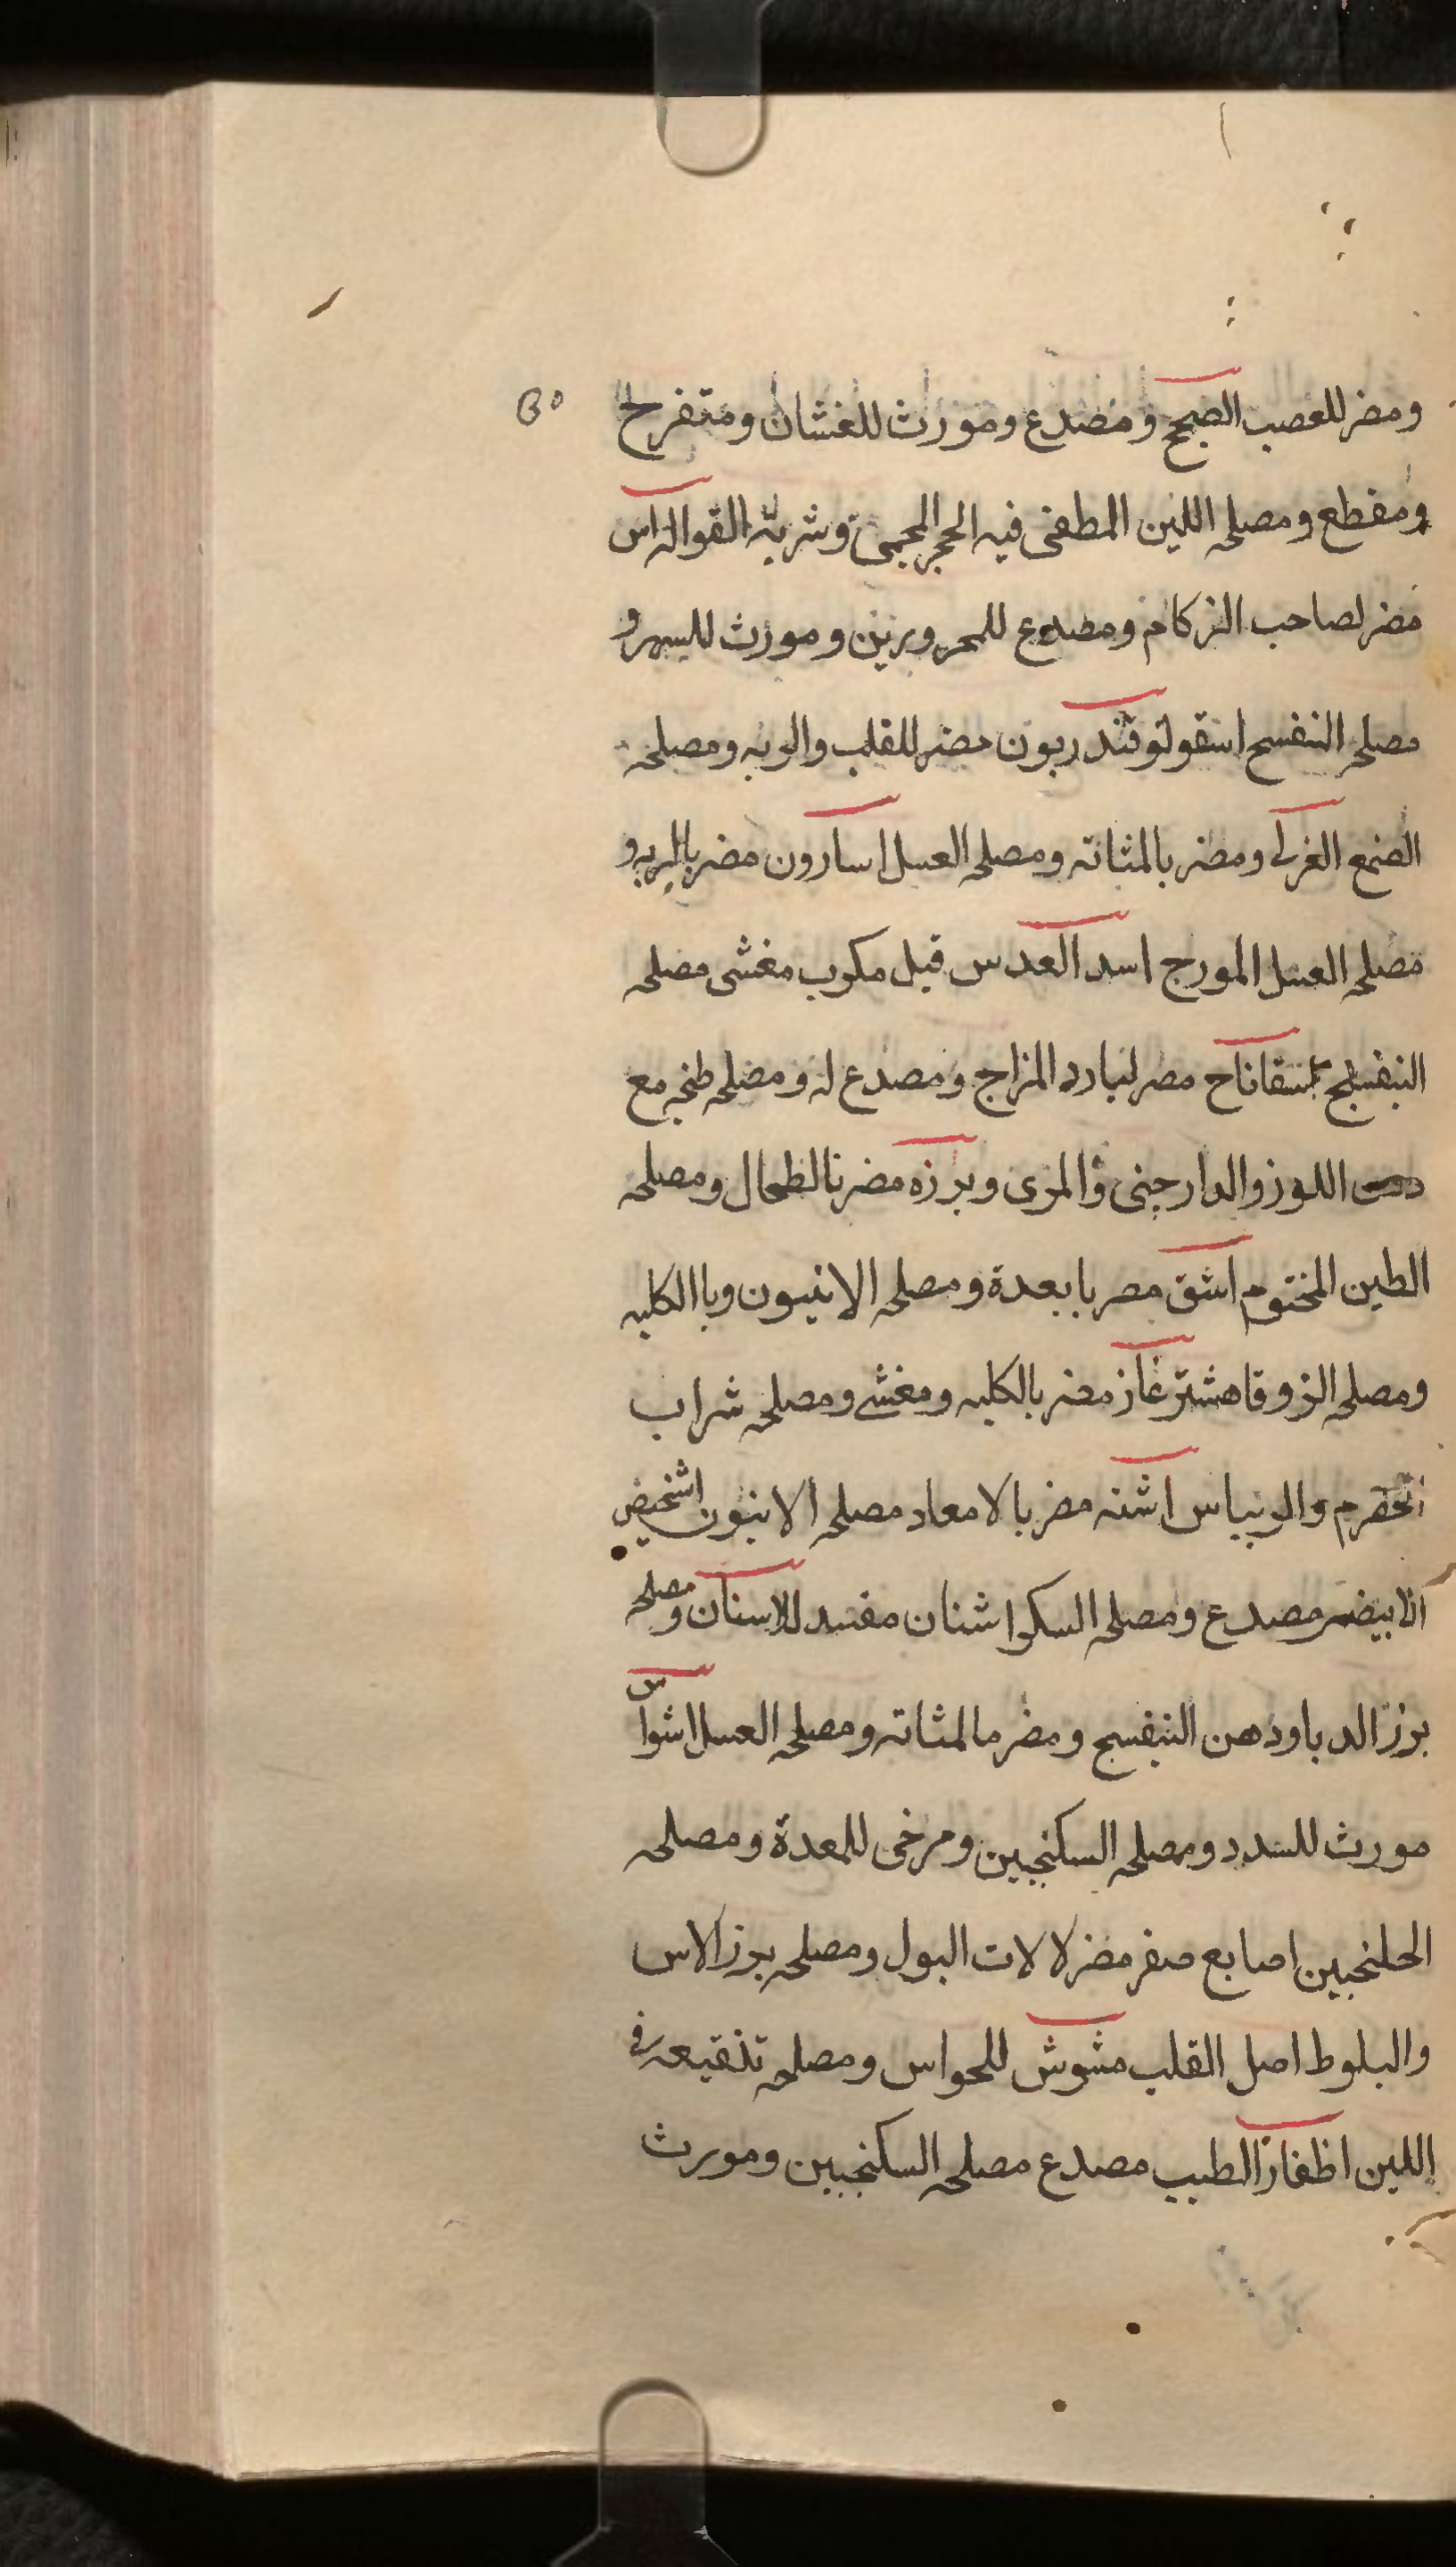 ومضر للعصب الصحيح ومصدع ومورث للغشان ومتفرح
ومقطع ومصلحه اللبن المطفى فيه الحجر المحمى وشربة القوالہ اس
مضر لصاحب الزكام ومصدع للمحرورين ومورث للسهر و
مصلحه البنفسج اسقولوقندريون مضر للقلب والريه ومصلحه
الصمغ العربى ومضر بالمثانه ومصلحه العسل اسارون مضر بالريه و
مصلحه العسل المورج اسد العدس قيل مكرب مغشى مصلحه
البنفسج اسفاناح مضر لبارد المزاج ومصدع له ومصلحه طبخه مع
دهن اللوز والدارجينى والمرى وبرزه مضر بالطحال ومصلحه
الطين المختوم اشق مضر بابعدة ومصلحه الانيسون وباالكليه
ومصلحه الزوفا اشترغاز مضر بالكليه ومغشى ومصلحه شراب
الحصرم والريباس اشنه مضر بالامعاد مصلحه الانيون اشخيص
الابيض مصدع ومصلحه السكر اشنان مفسد للاسنان ومصلحه
برز الدباودهن البنفسج ومضر بالمثانه ومصلحه العسل اشواس
مورث للسدد ومصلحه السكنجبين ومرخى للمعدة ومصلحه
الجلنجبين اصابع صفر مضر لالات البول ومصلحه برزالاس
والبلوط اصل القلب مشوش للحواس ومصلحه تنقيعه فى
اللبن اظفار الطيب مصدع مصلحه السكنجبين ومورث